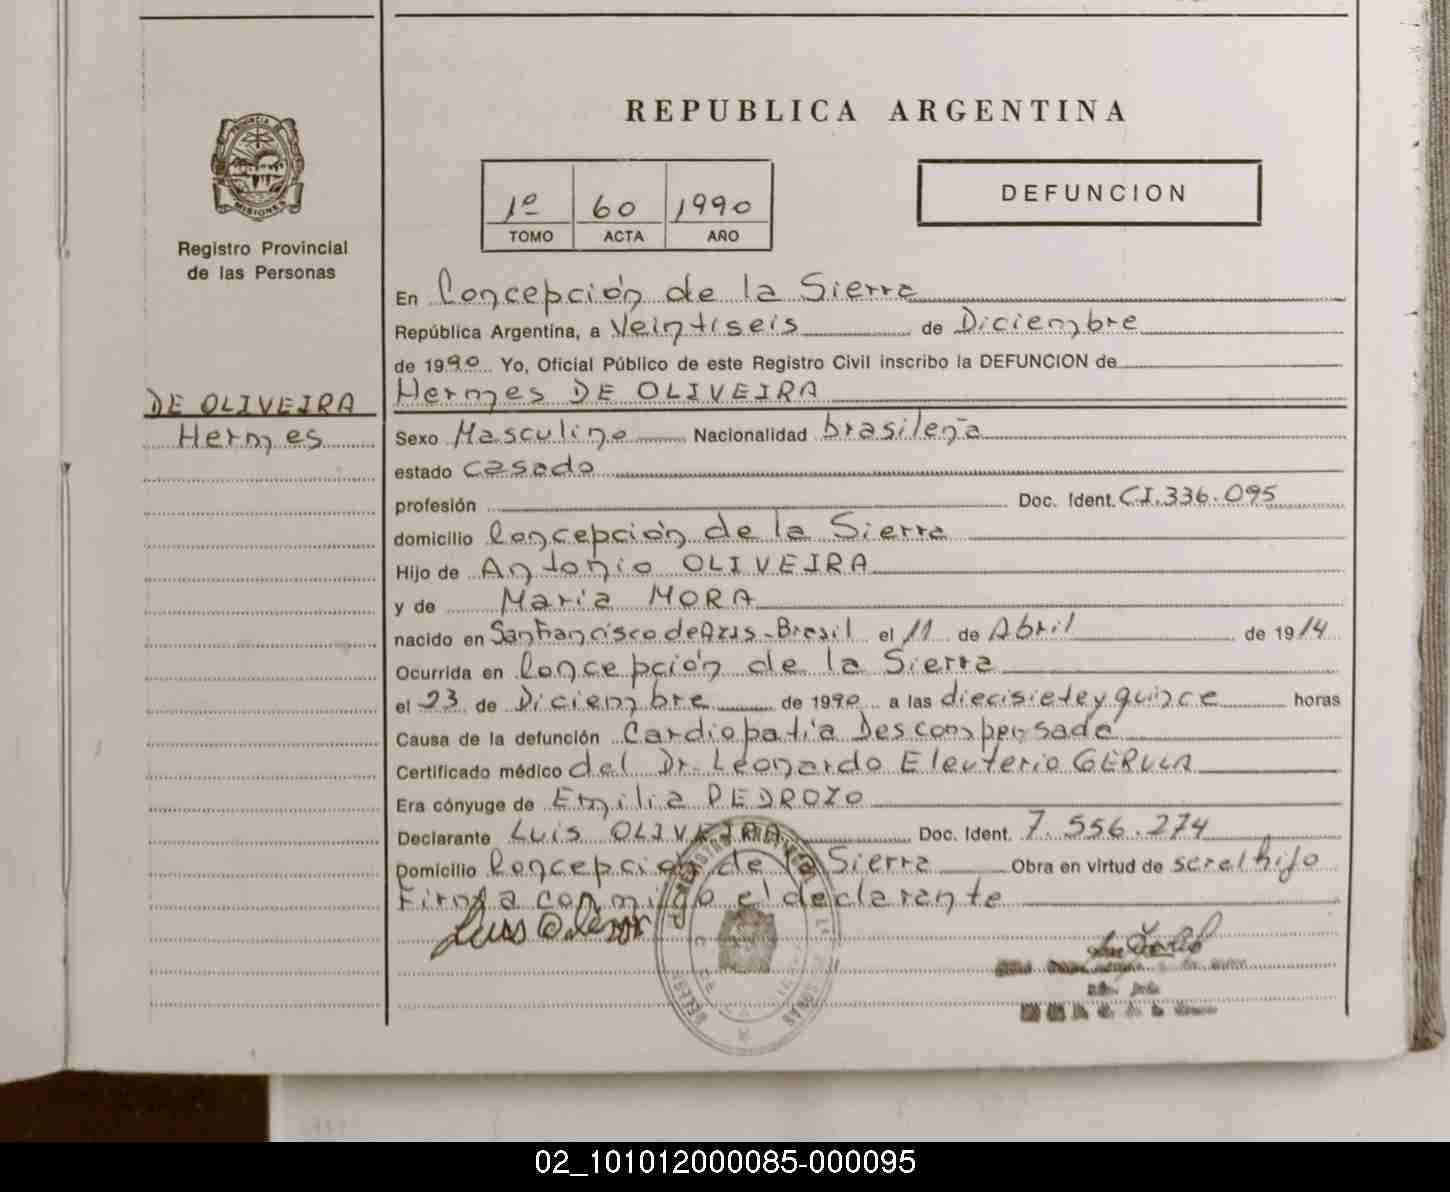 REPUBLICA ARGENTINA
PROVINCIA DE
MISIONES
Registro Provincial
de las Personas
1º 60 1990
TOMO ACTA AÑO
DEFUNCION
En Concepción de la Sierra
República Argentina, a Veintiseis de Diciembre
de 1990 Yo, Oficial Público de este Registro Civil inscribo la DEFUNCION de
Hermes DE OLIVEIRA
DE OLIVEIRA
Hermes
Sexo Masculino Nacionalidad brasileña
estado casado
profesión Doc. Ident. CI.336.095
domicilio Concepción de la Sierra
Hijo de Antonio OLIVEIRA
y de Maria MORA
nacido en San Francisco de Asis-Brasil el 11 de Abril de 1914
Ocurrida en Concepción de la Sierra
el 23 de Diciembre de 1990 a las diecisiete y quince horas
Causa de la defunción Cardiopatía Descompensada
Certificado médico del Dr. Leonardo Eleuterio GERULA
Era cónyuge de Emilia PEDROZO
Declarante Luis OLIVEIRA Doc. Ident. 7.556.274
Domicilio Concepción de la Sierra Obra en virtud de ser el hijo
Firma conmigo el declarante
02_101012000085-000095